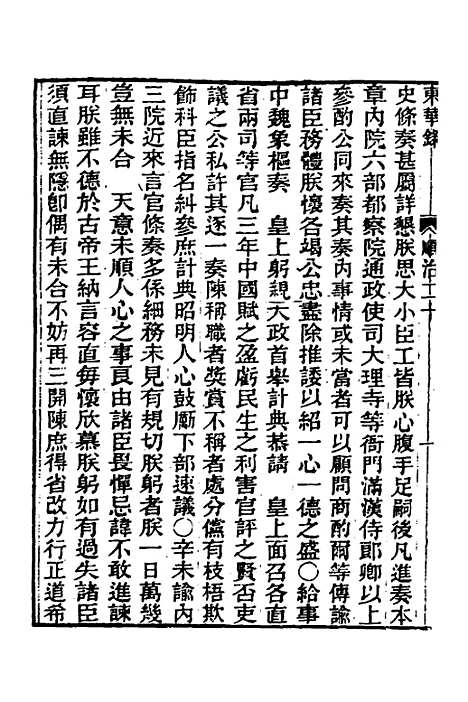 東華錄 順治二十 一
史條奏甚屬詳懇朕思大小臣工皆朕心腹手足嗣後凡進奏本
章內院六部都察院通政使司大理寺等衙門滿漢侍郎卿以上
參酌公同來奏其奏內事情或未當者可以顧問商酌爾等傳諭
諸臣務體朕懷各竭公忠盡除推諉以紹一心一德之盛○給事
中魏象樞奏 皇上躬親大政首舉計典恭請 皇上面召各直
省兩司等官凡三年中國賦之盈虧民生之利害官評之賢否吏
議之公私許其逐一奏陳稱職者獎賞不稱者處分儻有枝梧欺
飾科臣指名糾參庶計典昭明人心鼓勵下部速議○辛未諭內
三院近來言官條奏多係細務未見有規切朕躬者朕一日萬幾
豈無未合 天意未順人心之事良由諸臣畏憚忌諱不敢進諫
耳朕雖不德於古帝王納言容直每懷欣慕朕躬如有過失諸臣
須直諫無隱卽偶有未合不妨再三開陳庶得省改力行正道希